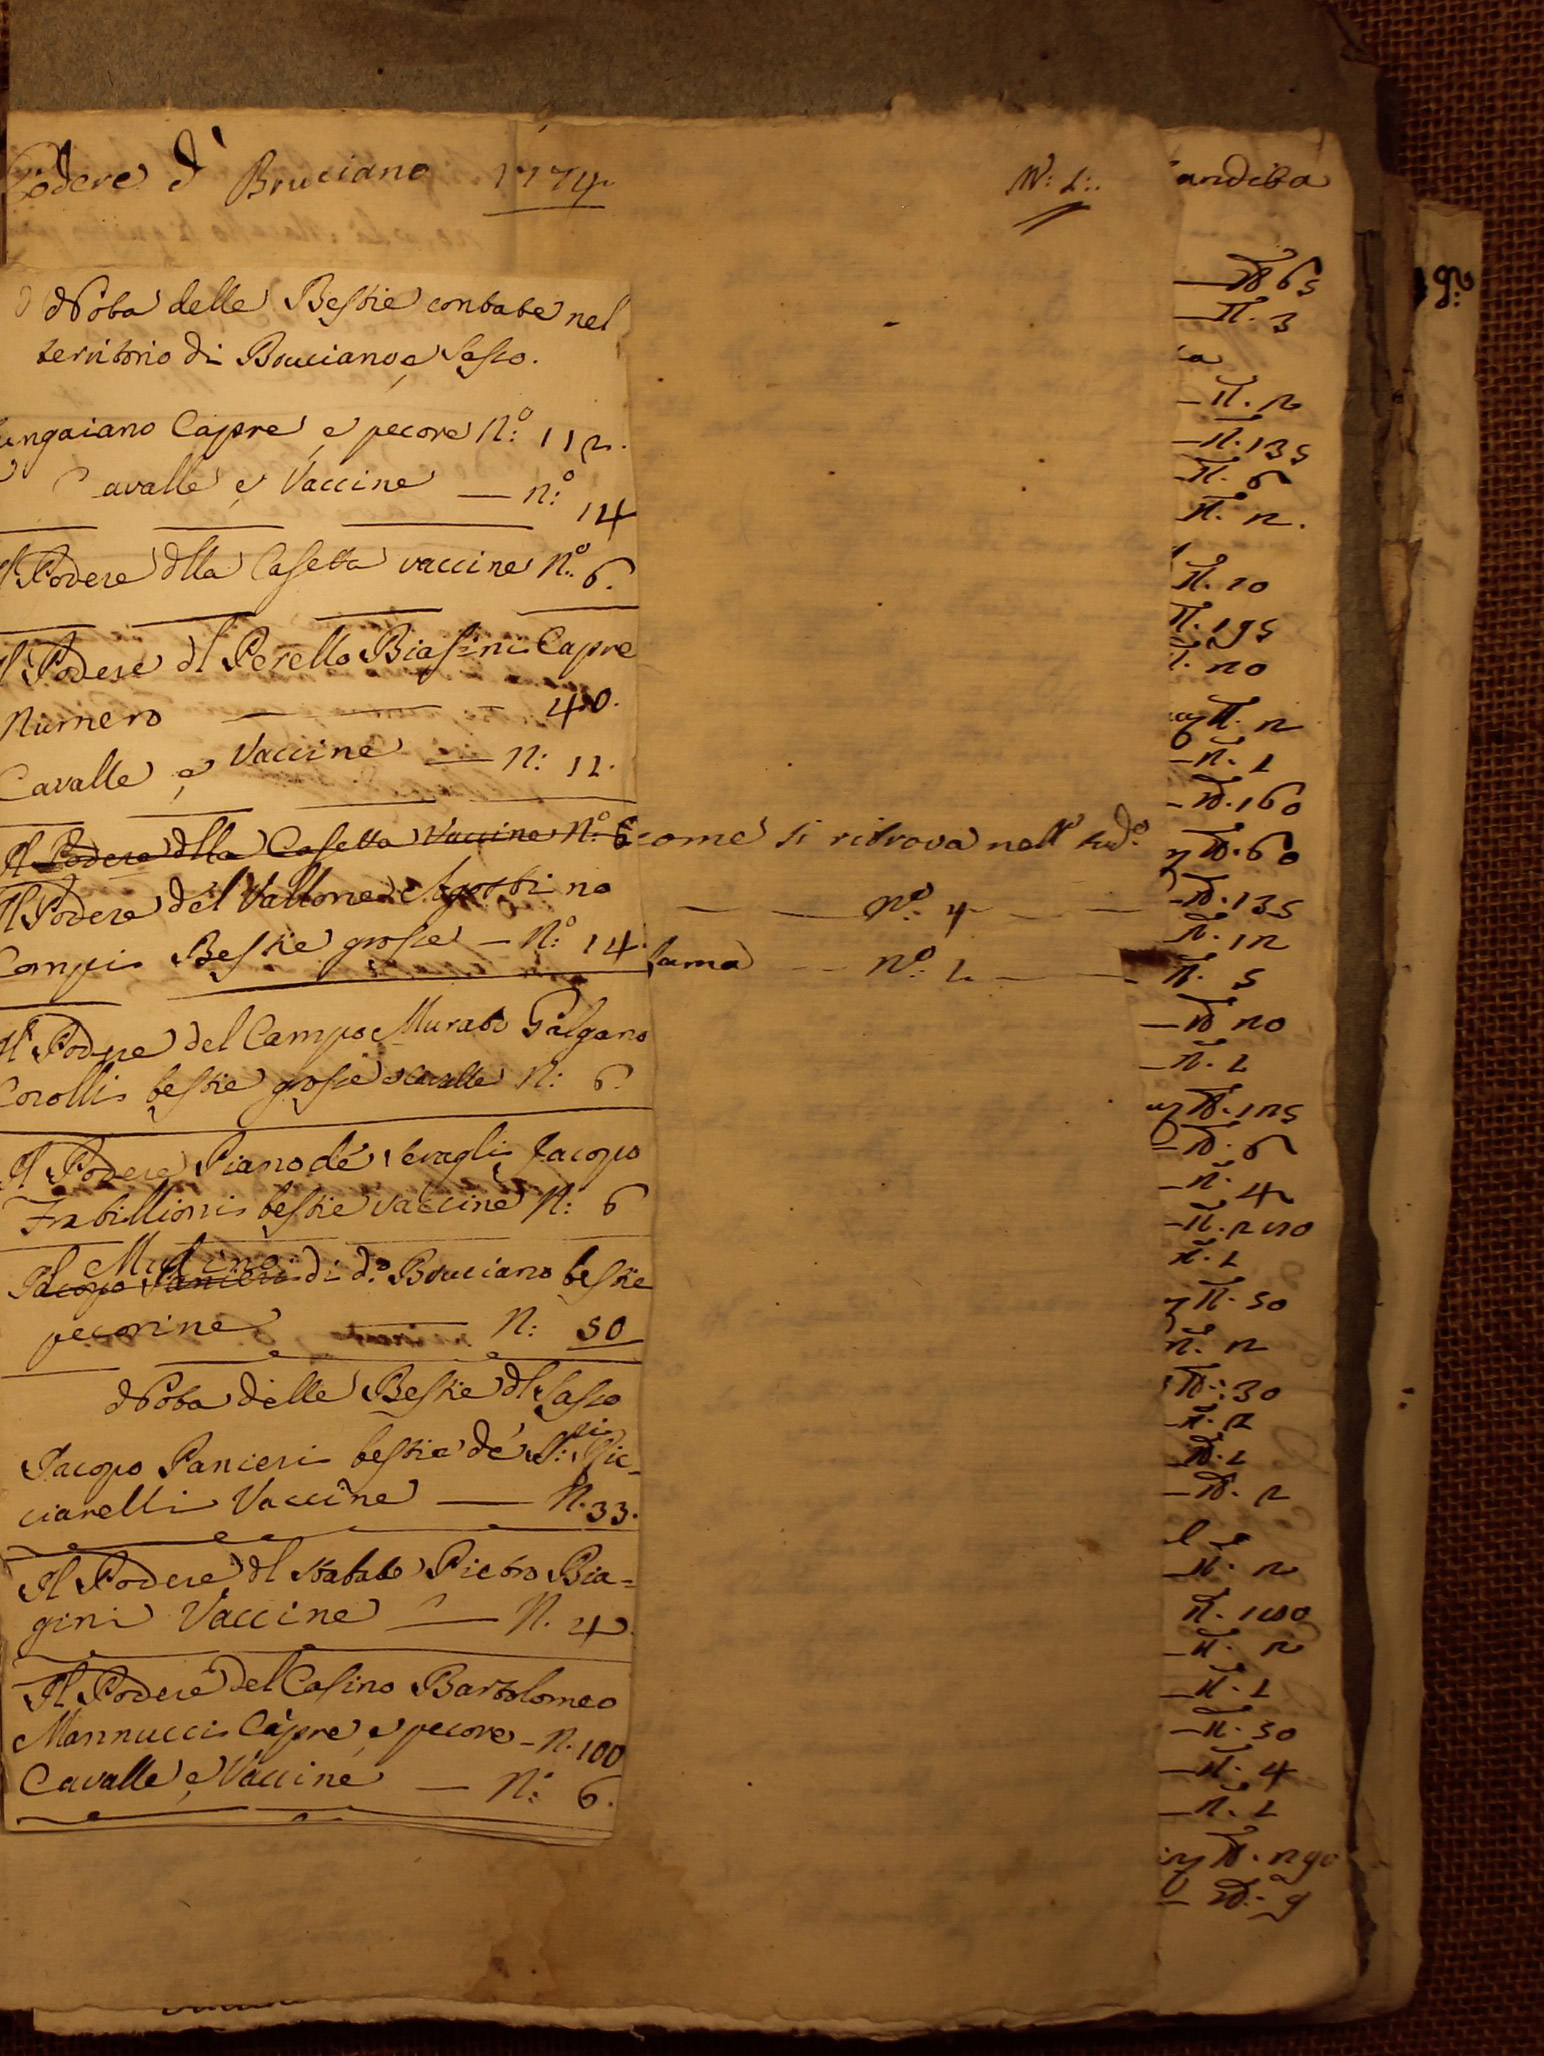 Podere d' Bruciano 1774
N: 1:
Nota delle Bestie contate nel
territorio di Bruciano e Sasso.
ungaiano Capre e pecore N:° 112.
Cavalle e Vaccine — N:° 14
Il Podere dlla Casetta vaccine N:° 6.
Il Podere dl Perello Biagini Capre
Numero — — 40.
Cavalle e Vaccine — N: 12.
Il Podere dlla Casetta Vaccine N:° 6
Il Podere del Vallone Agostino
Compi Bestie grosse — N:° 14.
Il Podere del Campo Murato Galgano
Corolli bestie grosse Cavalle N: 6.
Il Podere Piano de' Jacopo
bestie vaccine N: 6
Il Mulino
Jacopo Panieri di d.° Bruciano bestie
pecorine — N: 50
Nota delle Bestie dl Sasso
Jacopo Panieri bestie de' S:ri Ric-
ciarelli Vaccine — N. 33.
Il Podere dl Stabato Pietro Bia=
gini Vaccine — N. 4.
Il Podere del Casino Bartolomeo
Mannucci Capre, e pecore - N. 100
Cavalle e Vaccine — N: 6.
come si ritrova nell' sud°
— — N:° 4 — —
sama — — N:° 1 — —
andita
— N. 65
— N. 3
ca
— N. 2
— N. 135
N. 6
N. 2.
N. 10
N. 195
N. 20
N. 2
— N. 1
— N. 160
N. 60
— N. 135
N. 12
N. 5
— N. 20
— N. 1
N. 125
— N. 6
— N. 4
— N. 200
N. 1
N. 50
N. 2
N. 30
— N. 2
— N. 1
— N. 2
— N. 2
N. 100
— N. 2
— N. 1
— N. 50
— N. 4
— N. 1
N. 290
— N. 9